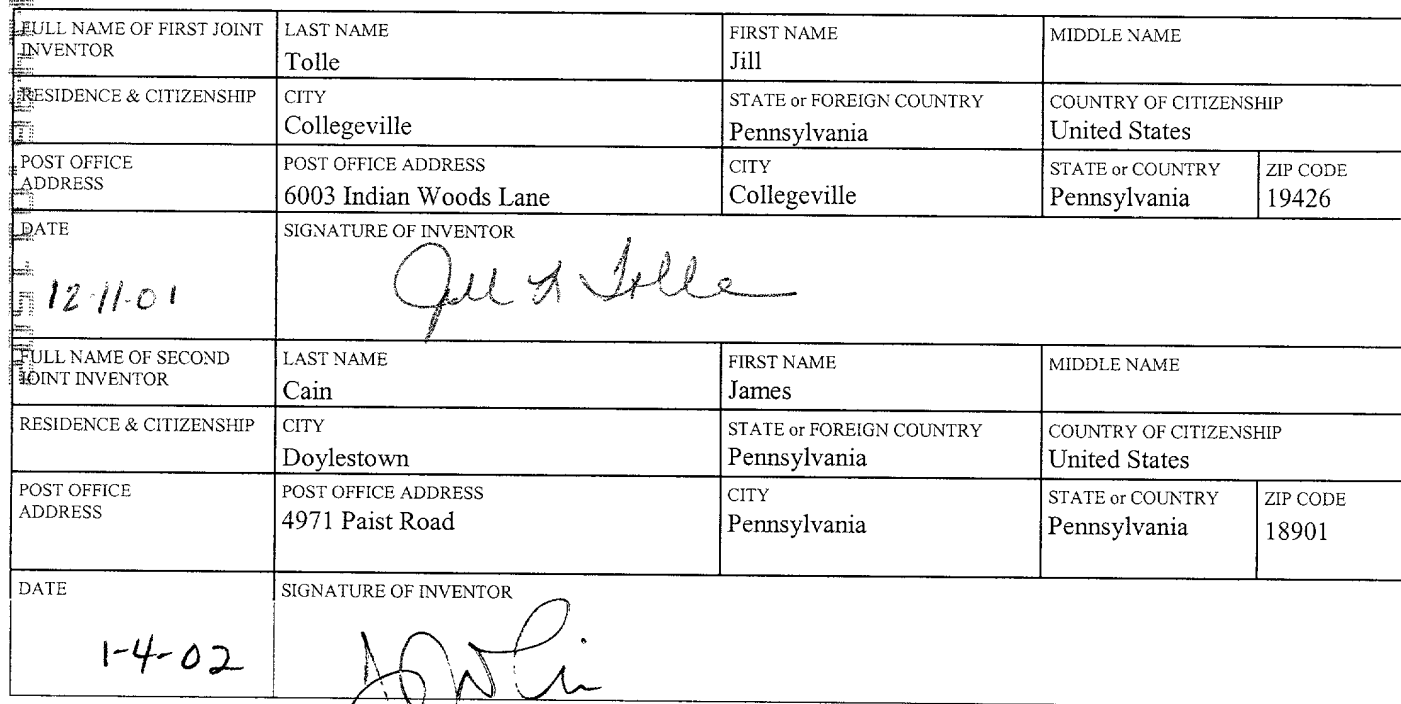 FULL NAME OF FIRST JOINT INVENTOR LAST NAME Tolle FIRST NAME Jill MIDDLE NAME
RESIDENCE & CITIZENSHIP CITY Collegeville STATE or FOREIGN COUNTRY Pennsylvania COUNTRY OF CITIZENSHIP United States
POST OFFICE ADDRESS POST OFFICE ADDRESS 6003 Indian Woods Lane CITY Collegeville STATE or COUNTRY Pennsylvania ZIP CODE 19426
DATE 12-11-01 SIGNATURE OF INVENTOR Jill Tolle
FULL NAME OF SECOND JOINT INVENTOR LAST NAME Cain FIRST NAME James MIDDLE NAME
RESIDENCE & CITIZENSHIP CITY Doylestown STATE or FOREIGN COUNTRY Pennsylvania COUNTRY OF CITIZENSHIP United States
POST OFFICE ADDRESS POST OFFICE ADDRESS 4971 Paist Road CITY Pennsylvania STATE or COUNTRY Pennsylvania ZIP CODE 18901
DATE 1-4-02 SIGNATURE OF INVENTOR